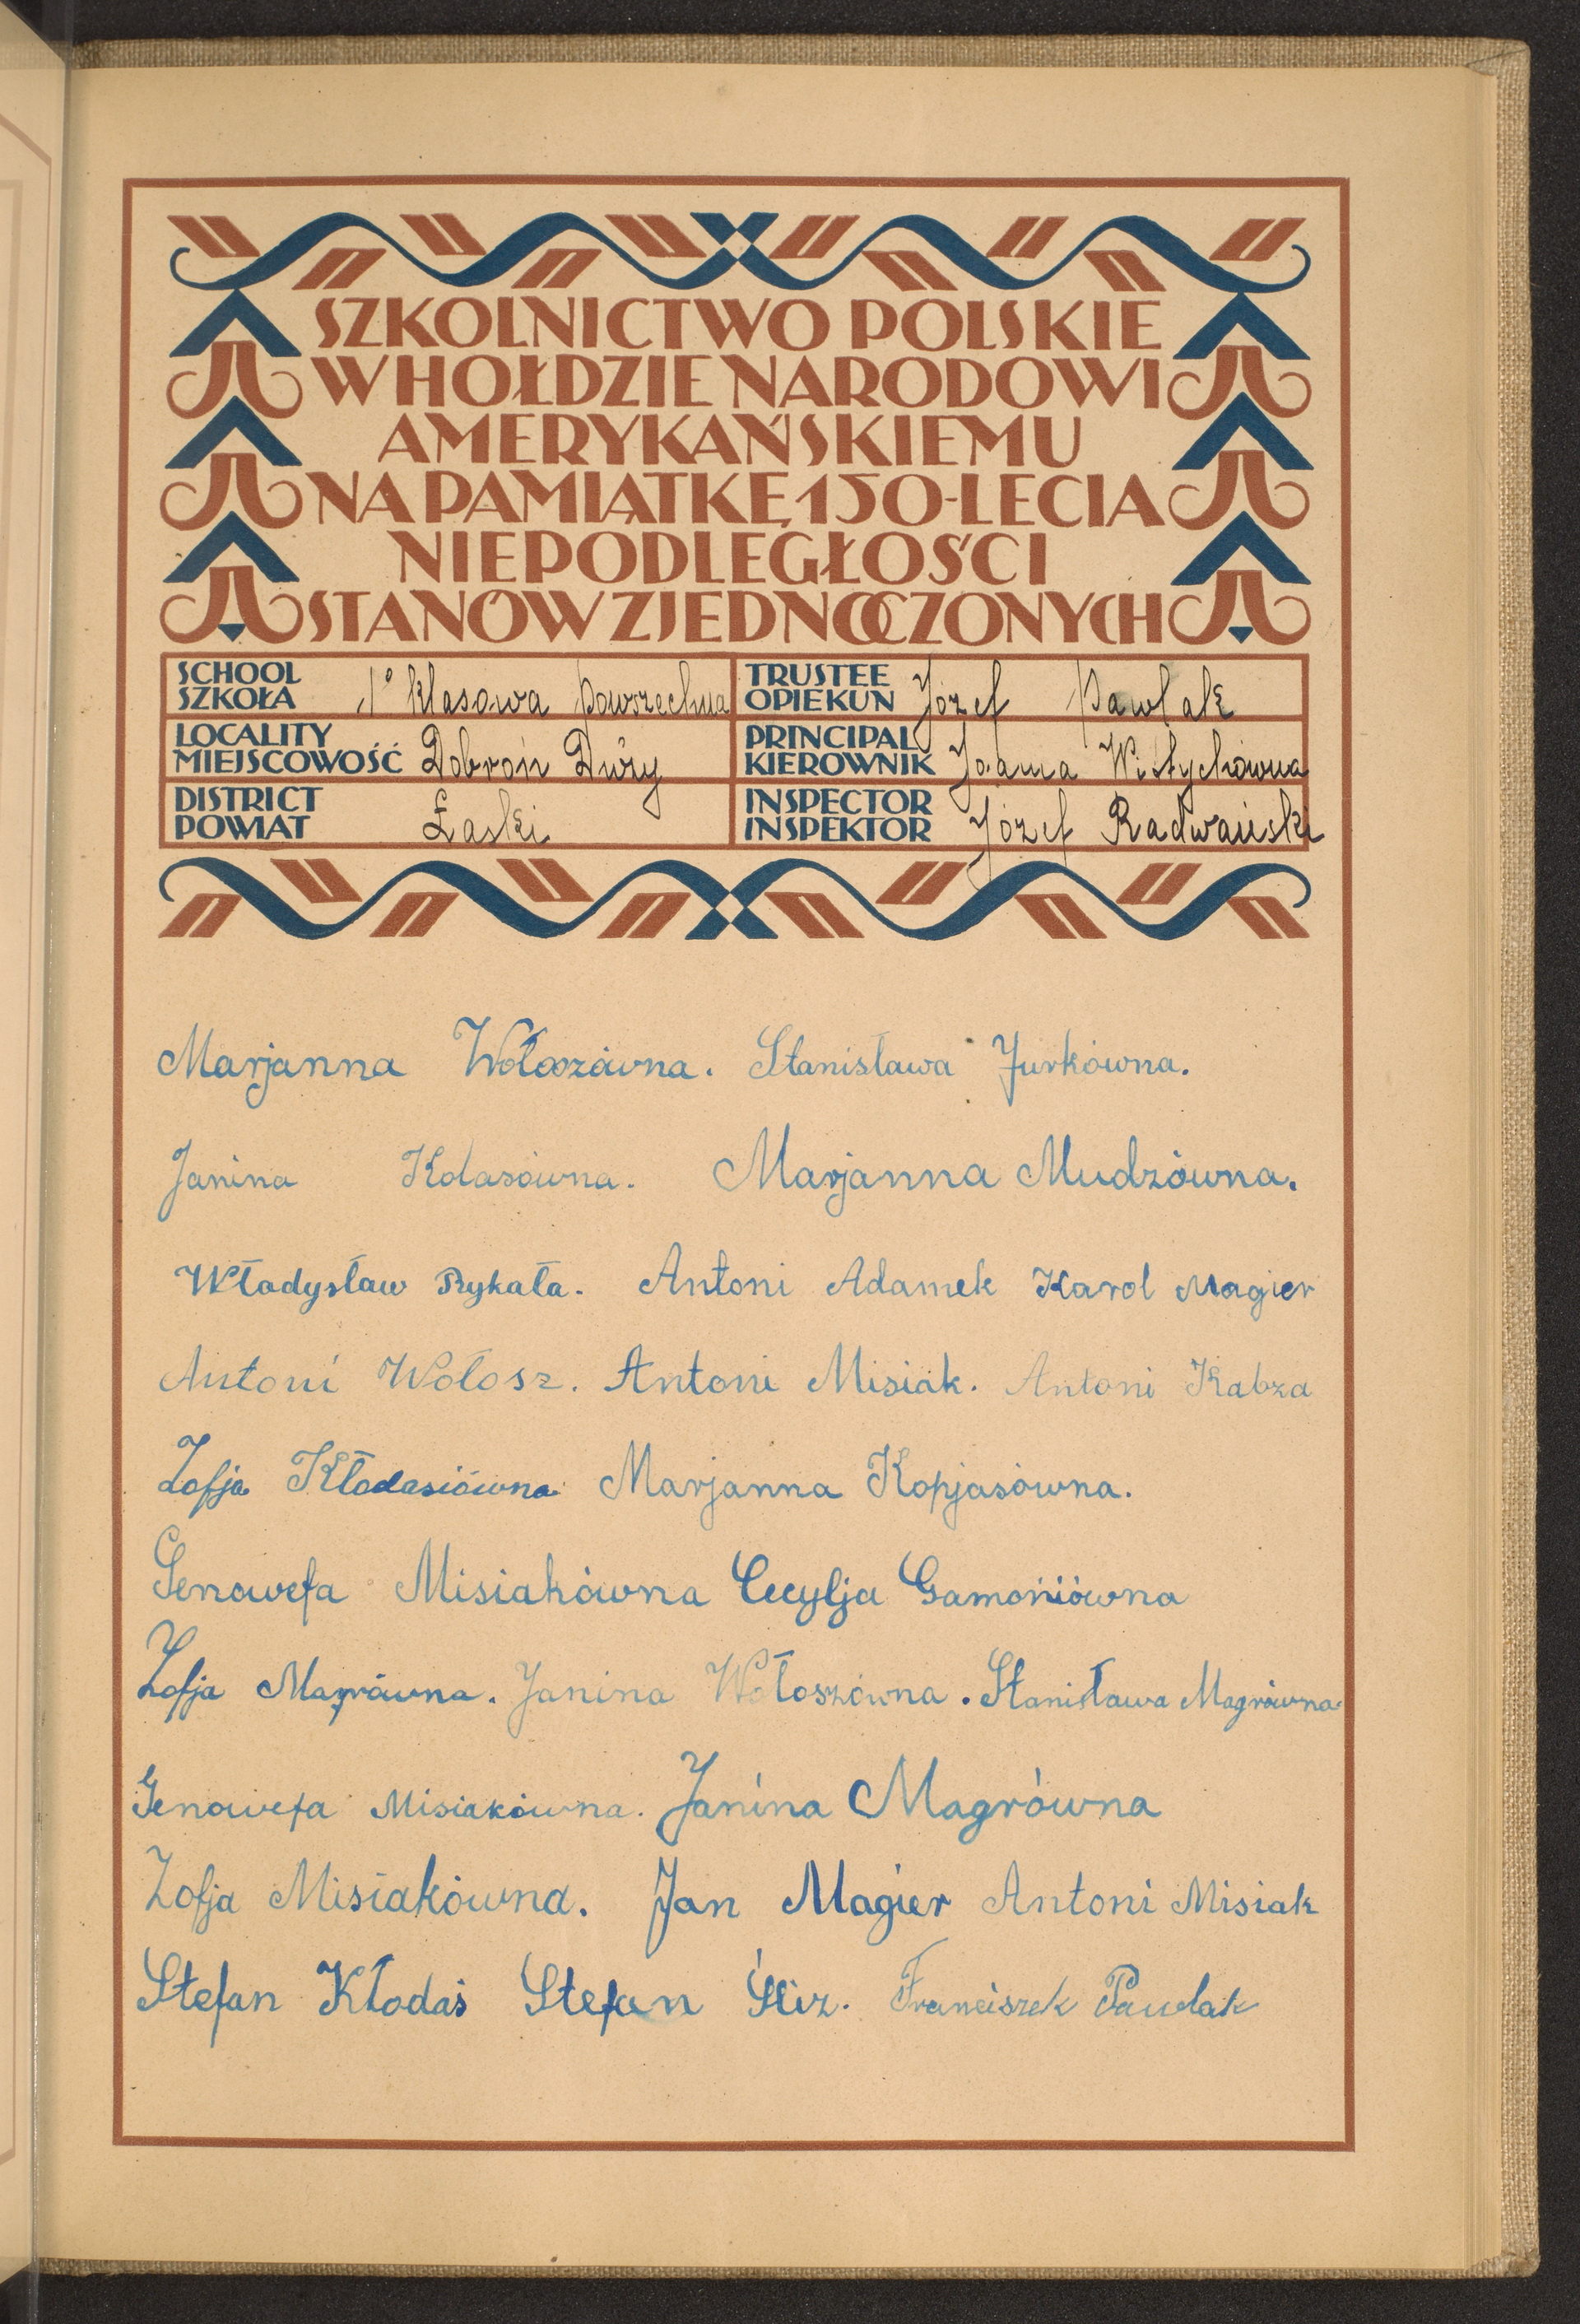 SZKOLNICTWO POLSKIE
W HOŁDZIE NARODOWI
AMERYKAŃSKIEMU
NA PAMIĄTKĘ 150-LECIA
NIEPODLEGŁOŚCI
STANÓW ZJEDNOCZONYCH
SCHOOL
SZKOŁA klasowa powszechna
TRUSTEE
OPIEKUN Józef Pawlak
LOCALITY
MIEJSCOWOŚĆ Dobroń Duży
PRINCIPAL
KIEROWNIK Wistychówna
DISTRICT
POWIAT Łaski
INSPECTOR
INSPEKTOR Józef Radwański
Marjanna Wołoszówna. Stanisława Jurkówna.
Janina Kolasówna. Marjanna Mudzówna.
Władysław Rykała. Antoni Adamek Karol Magier
Antoni Wołosz. Antoni Misiak. Antoni Kabza
Zofja Kłodasiówna Marjanna Kopjasówna.
Genowefa Misiakówna Cecylja Gamoniówna
Zofja Magrówna. Janina Wołoszówna. Stanisława Magrówna.
Genowefa Misiakówna. Janina Magrówna
Zofja Misiakówna. Jan Magier Antoni Misiak
Stefan Kłodaś Stefan Śliz. Franciszek Pawlak